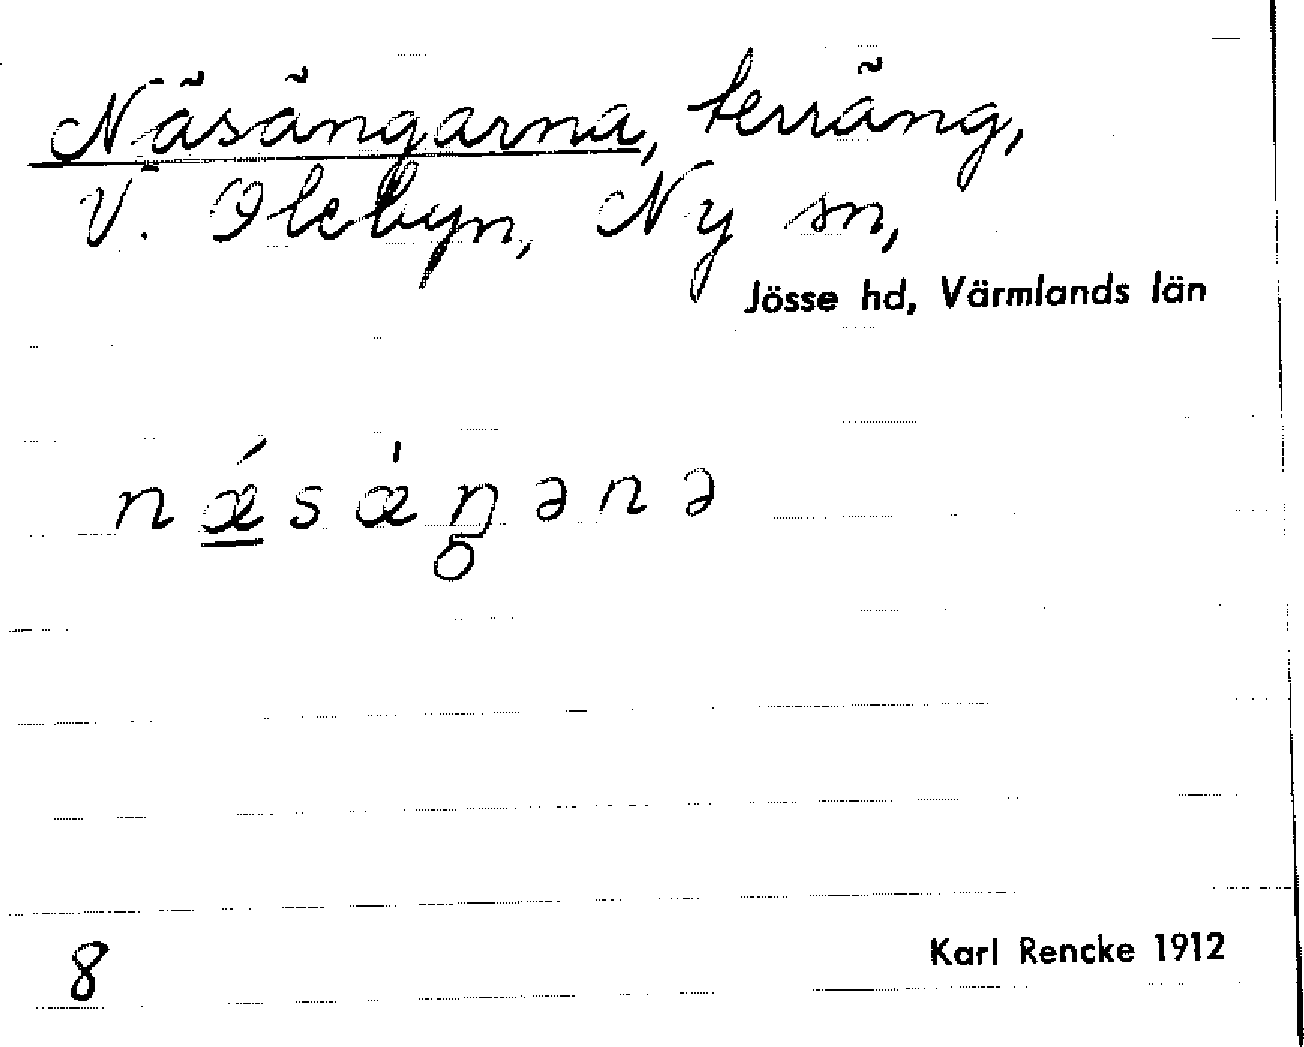 Näsängarna, terräng,
V. Ilebyn, Ny sn,
Jösse hd, Värmlands län
nǽ̲sæ̍ŋənə
8
Karl Rencke 1912